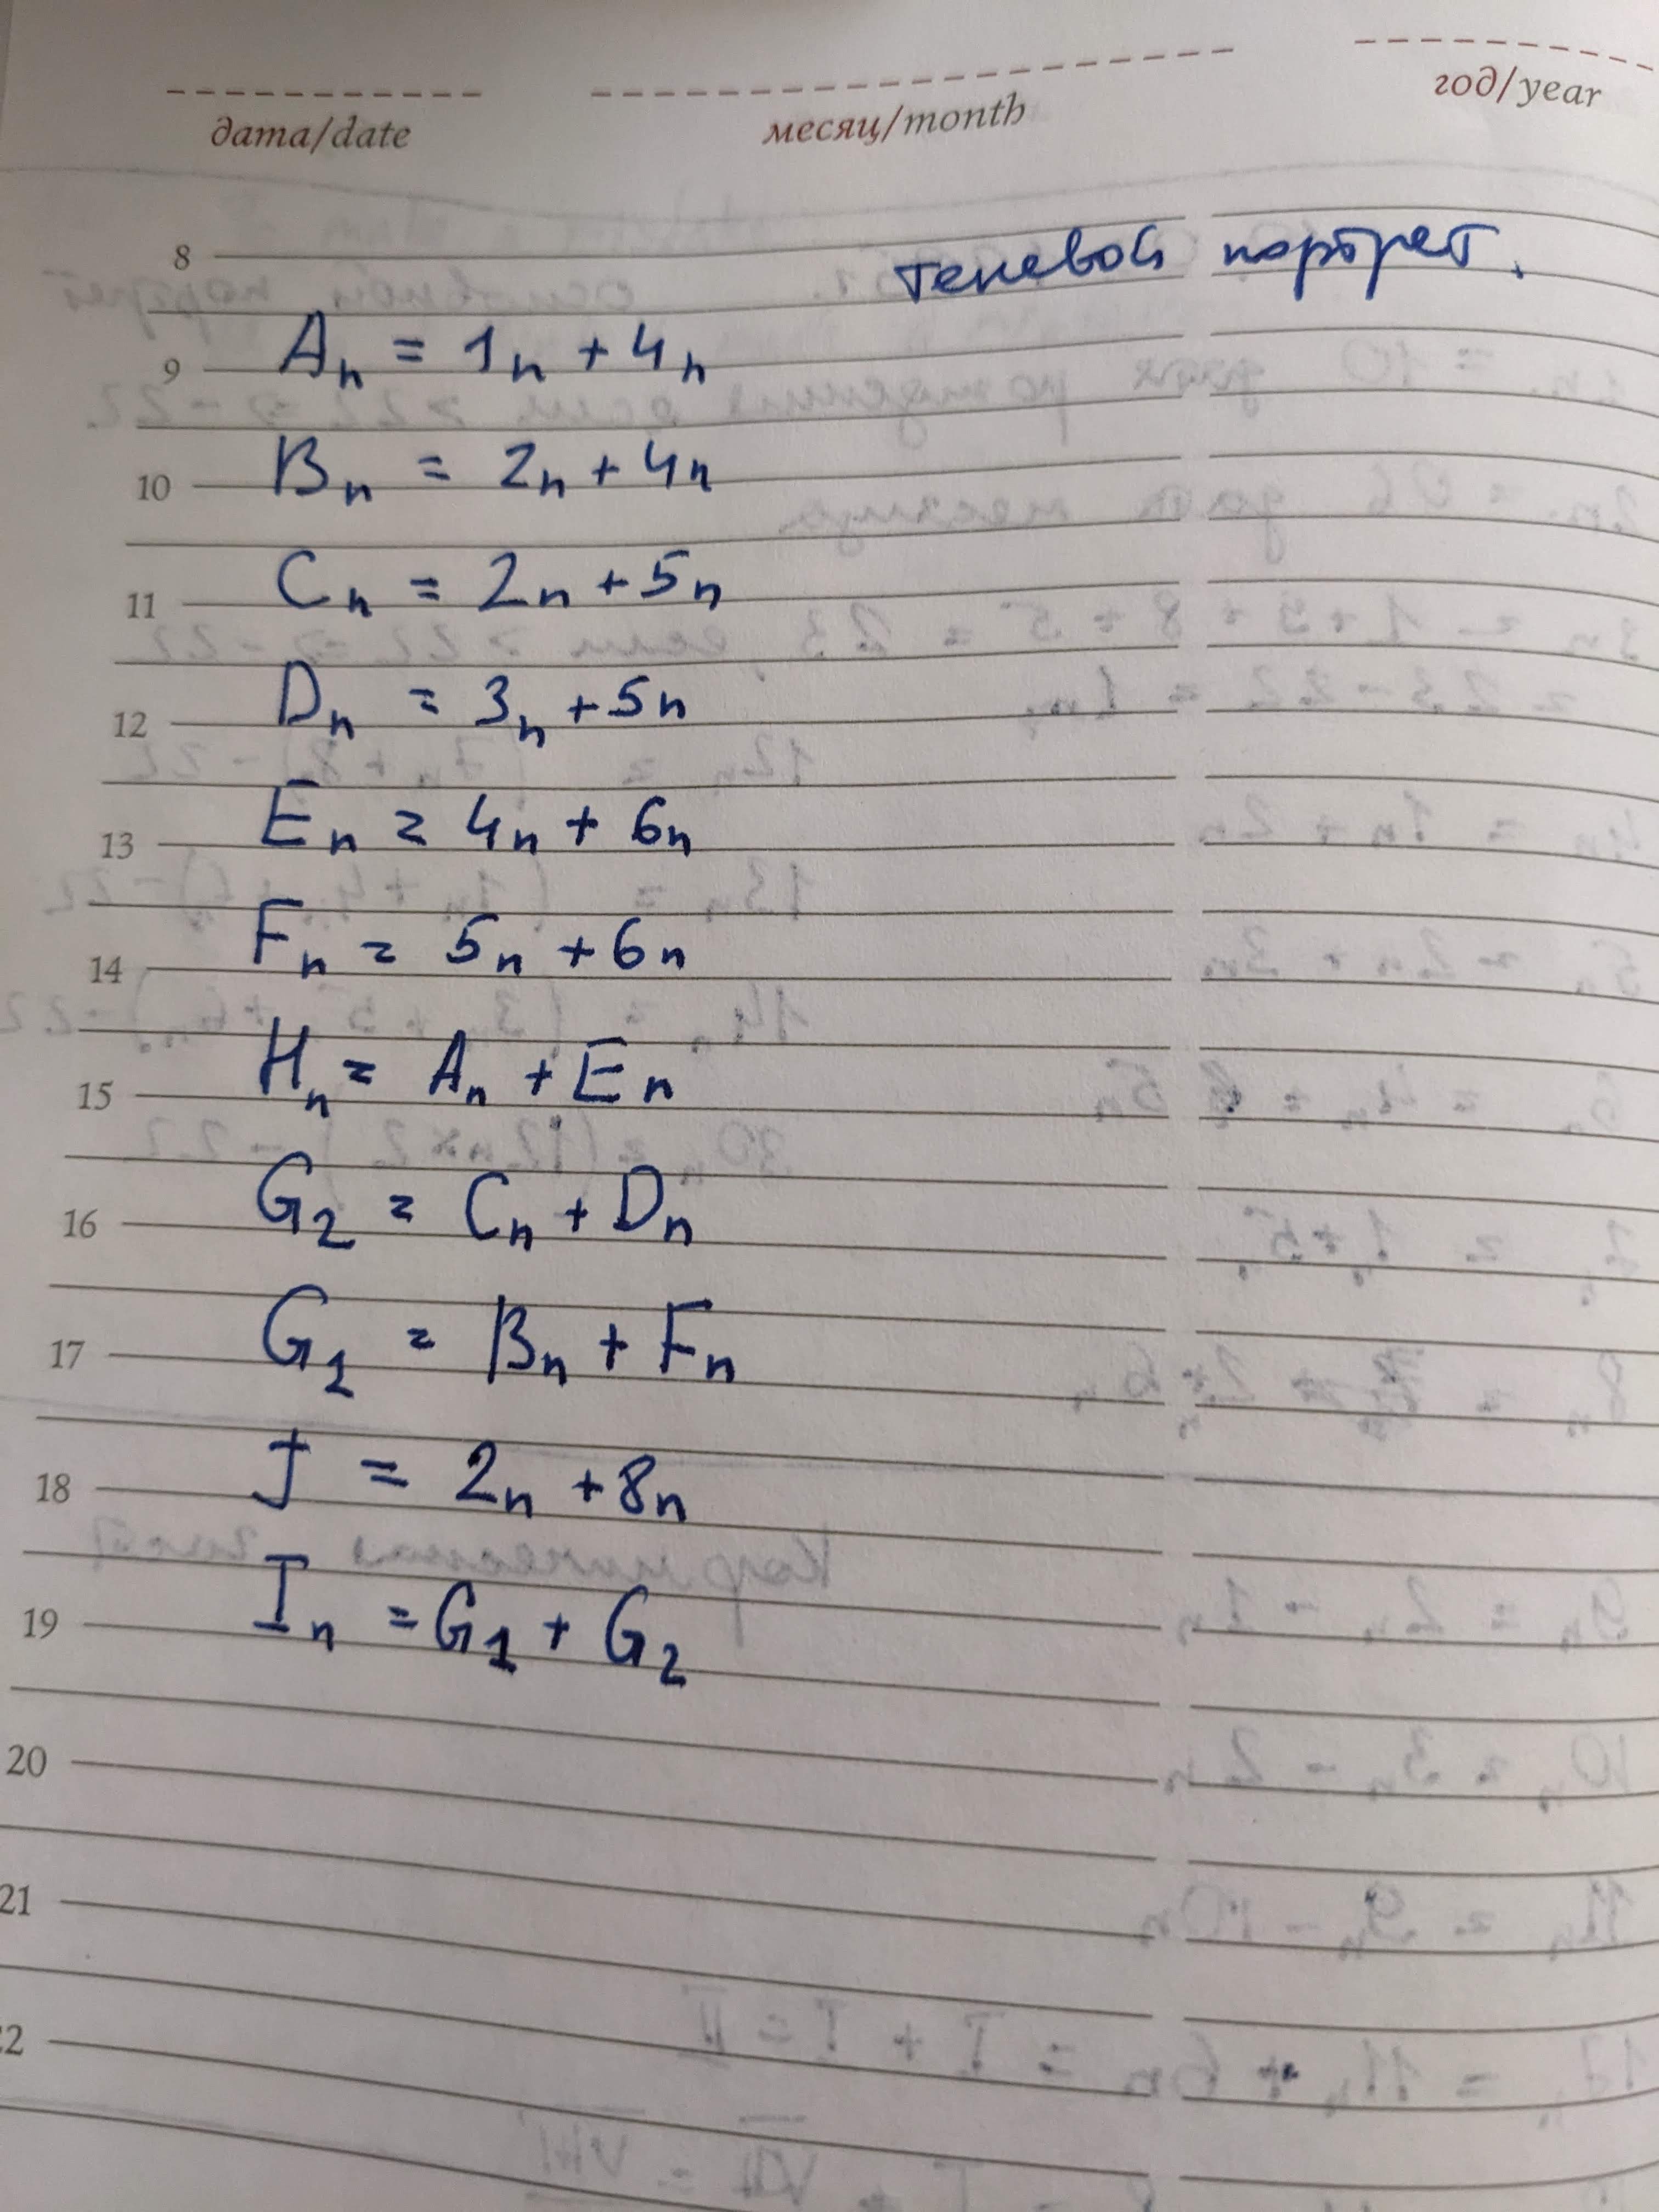 дата/date месяц/month год/year
8 теневой портрет.
9 Aₙ = 1ₙ + 4ₙ
10 Bₙ = 2ₙ + 4ₙ
11 Cₙ = 2ₙ + 5ₙ
12 Dₙ = 3ₙ + 5ₙ
13 Eₙ = 4ₙ + 6ₙ
14 Fₙ = 5ₙ + 6ₙ
15 Hₙ = Aₙ + Eₙ
16 G₂ = Cₙ + Dₙ
17 G₁ = Bₙ + Fₙ
18 J = 2ₙ + 8ₙ
19 Iₙ = G₁ + G₂
20
21